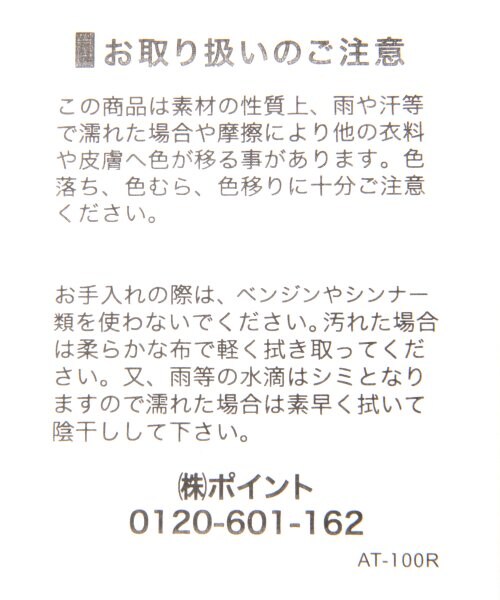 お取り扱いのご注意
この商品は素材の性質上、雨や汗等
で濡れた場合や摩擦により他の衣料
や皮膚へ色が移る事があります。色
落ち、色むら、色移りに十分ご注意
ください。
お手入れの際は、ベンジンやシンナー
類を使わないでください。汚れた場合
は柔らかな布で軽く拭き取ってくだ
さい。又、雨等の水滴はシミとなり
ますので濡れた場合は素早く拭いて
陰干しして下さい。
㈱ポイント
0120-601-162
AT-100R